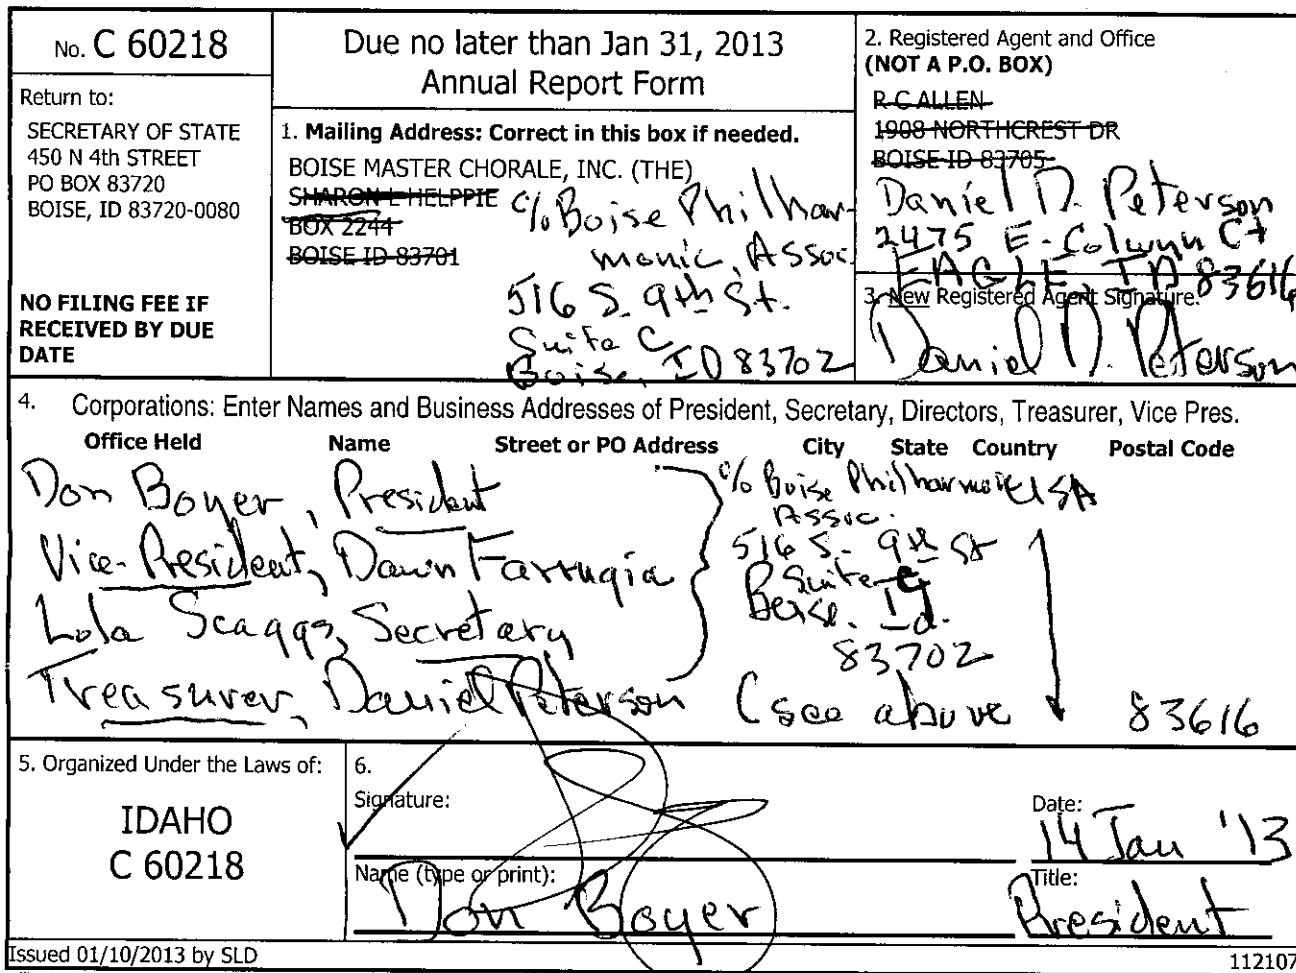 No. C 60218
Return to:
SECRETARY OF STATE
450 N 4th STREET
PO BOX 83720
BOISE, ID 83720-0080
NO FILING FEE IF
RECEIVED BY DUE
DATE
Due no later than Jan 31, 2013
Annual Report Form
1. Mailing Address: Correct in this box if needed.
BOISE MASTER CHORALE, INC. (THE)
SHARON L HELPPIE
BOX 2244
BOISE ID 83701
c/o Boise Philhar-
monic, Assoc.
516 S. 9th St.
Suite C
Boise, ID 83702
2. Registered Agent and Office
(NOT A P.O. BOX)
R C ALLEN
1908 NORTHCREST DR
BOISE ID 83705
Daniel D. Peterson
2475 E. Colwyn Ct
EAGLE ID 83616
3. New Registered Agent Signature.
Daniel D. Peterson
4. Corporations: Enter Names and Business Addresses of President, Secretary, Directors, Treasurer, Vice Pres.
Office Held Name Street or PO Address City State Country Postal Code
Don Boyer, President
Vice-President, Dawn Farrugia
Lola Scaggs, Secretary
Treasurer, Daniel Peterson (see above 83616
c/o Boise Philharmonic USA
Assoc.
516 S. 9th St
Suite C
Boise, Id.
83702
5. Organized Under the Laws of:
IDAHO
C 60218
6.
Signature:
Date:
14 Jan '13
Name (type or print):
Don Boyer
Title:
President
Issued 01/10/2013 by SLD
112107